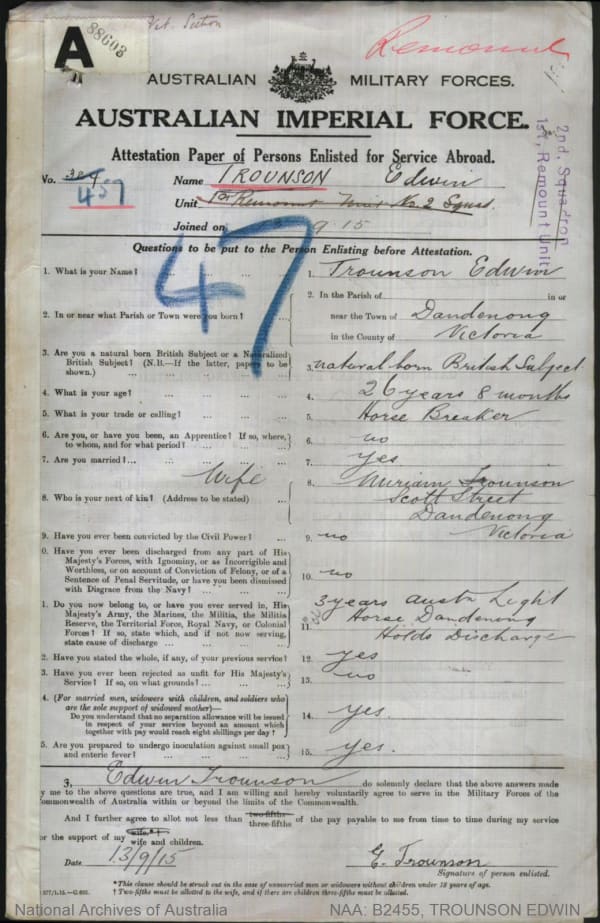 Vet. Section
A
88603
Remount
AUSTRALIAN MILITARY FORCES.
AUSTRALIAN IMPERIAL FORCE.
Attestation Paper of Persons Enlisted for Service Abroad.
2nd. Squadron
1st. Remount Unit
No. 457
Name TROUNSON Edwin
Unit 1st Remount Unit No. 2 Squad.
Joined on 9 15
47
Questions to be put to the Person Enlisting before Attestation.
1. What is your Name? ... ... ... 1. Trounson Edwin
2. In or near what Parish or Town were you born? ...
2. In the Parish of in or
near the Town of Dandenong
in the County of Victoria
3. Are you a natural born British Subject or a Naturalized
British Subject? (N.B.—If the latter, papers to be
shown.) ... ... ...
3. natural born British Subject
4. What is your age? ... ... ... 4. 26 years 8 months
5. What is your trade or calling? ... ... 5. Horse Breaker
6. Are you, or have you been, an Apprentice? If so, where,
to whom, and for what period? ... ...
6. no
7. Are you married?... ... ... 7. yes
Wife
8. Who is your next of kin? (Address to be stated) ...
8. Miriam Trounson
Scott Street
Dandenong
Victoria
9. Have you ever been convicted by the Civil Power? ... 9. no
0. Have you ever been discharged from any part of His
Majesty's Forces, with Ignominy, or as Incorrigible and
Worthless, or on account of Conviction of Felony, or of a
Sentence of Penal Servitude, or have you been dismissed
with Disgrace from the Navy? ... ...
10. no
1. Do you now belong to, or have you ever served in, His
Majesty's Army, the Marines, the Militia, the Militia
Reserve, the Territorial Force, Royal Navy, or Colonial
Forces? If so, state which, and if not now serving,
state cause of discharge ... ...
11. 3 years Austn Light
Horse Dandenong
Holds Discharge
2. Have you stated the whole, if any, of your previous service? 12. yes
3. Have you ever been rejected as unfit for His Majesty's
Service? If so, on what grounds? ... ...
13. no
4. (For married men, widowers with children, and soldiers who
are the sole support of widowed mother)—
Do you understand that no separation allowance will be issued
in respect of your service beyond an amount which
together with pay would reach eight shillings per day?
14. yes.
5. Are you prepared to undergo inoculation against small pox
and enteric fever? ... ... ...
15. yes.
I, Edwin Trounson do solemnly declare that the above answers made
by me to the above questions are true, and I am willing and hereby voluntarily agree to serve in the Military Forces of the
Commonwealth of Australia within or beyond the limits of the Commonwealth.
And I further agree to allot not less than two-fifths three-fifths of the pay payable to me from time to time during my service
for the support of my wife,*† wife and children.
Date 13/9/15
E. Trounson
Signature of person enlisted.
*This clause should be struck out in the case of unmarried men or widowers without children under 18 years of age.
† Two-fifths must be allotted to the wife, and if there are children three-fifths must be allotted.
577/1.15.—C.
National Archives of Australia NAA: B2455, TROUNSON EDWIN